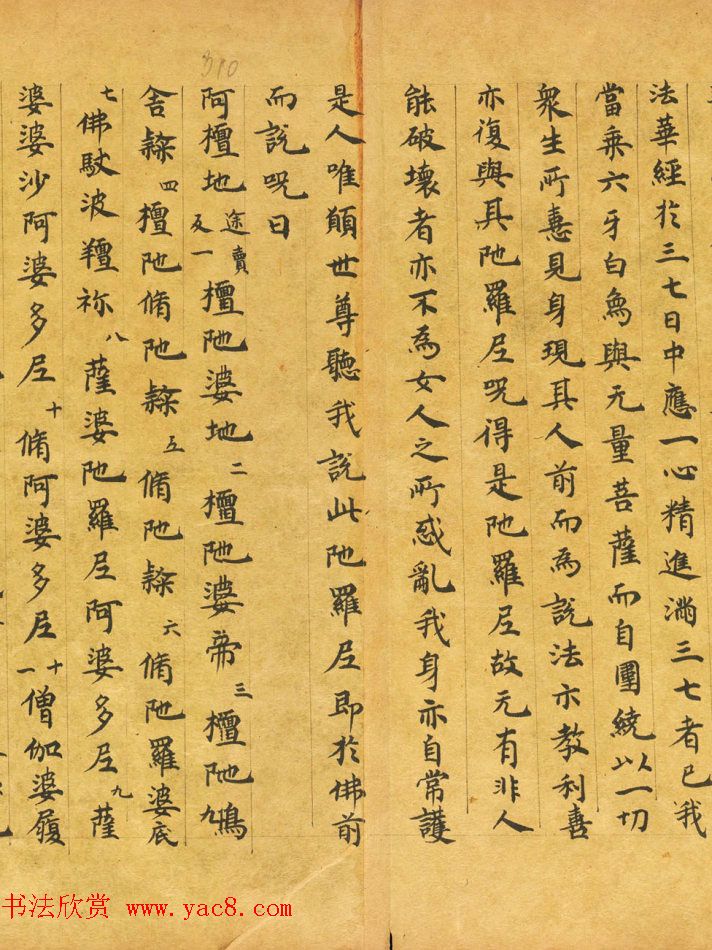 310
法華經於三七日中應一心精進滿三七者已我
當乗六牙白象與无量菩薩而自圍繞以一切
衆生所憙見身現其人前而為說法亦教利憙
亦復與其陁羅尼呪得是陁羅尼故无有非人
能破壞者亦不為女人之所惑亂我身亦自常護
是人唯願世尊聽我說此陁羅尼即於佛前
而說呪曰
阿檀地途賣反一檀陁婆地二檀陁婆帝三檀陁鳩
舍隸四檀陁脩陁隸五脩陁隸六脩陁羅婆底
七佛馱波羶祢八薩婆陁羅尼阿婆多尼九薩
婆婆沙阿婆多尼十脩阿婆多尼十一僧伽婆履
书法欣赏 www.yac8.com